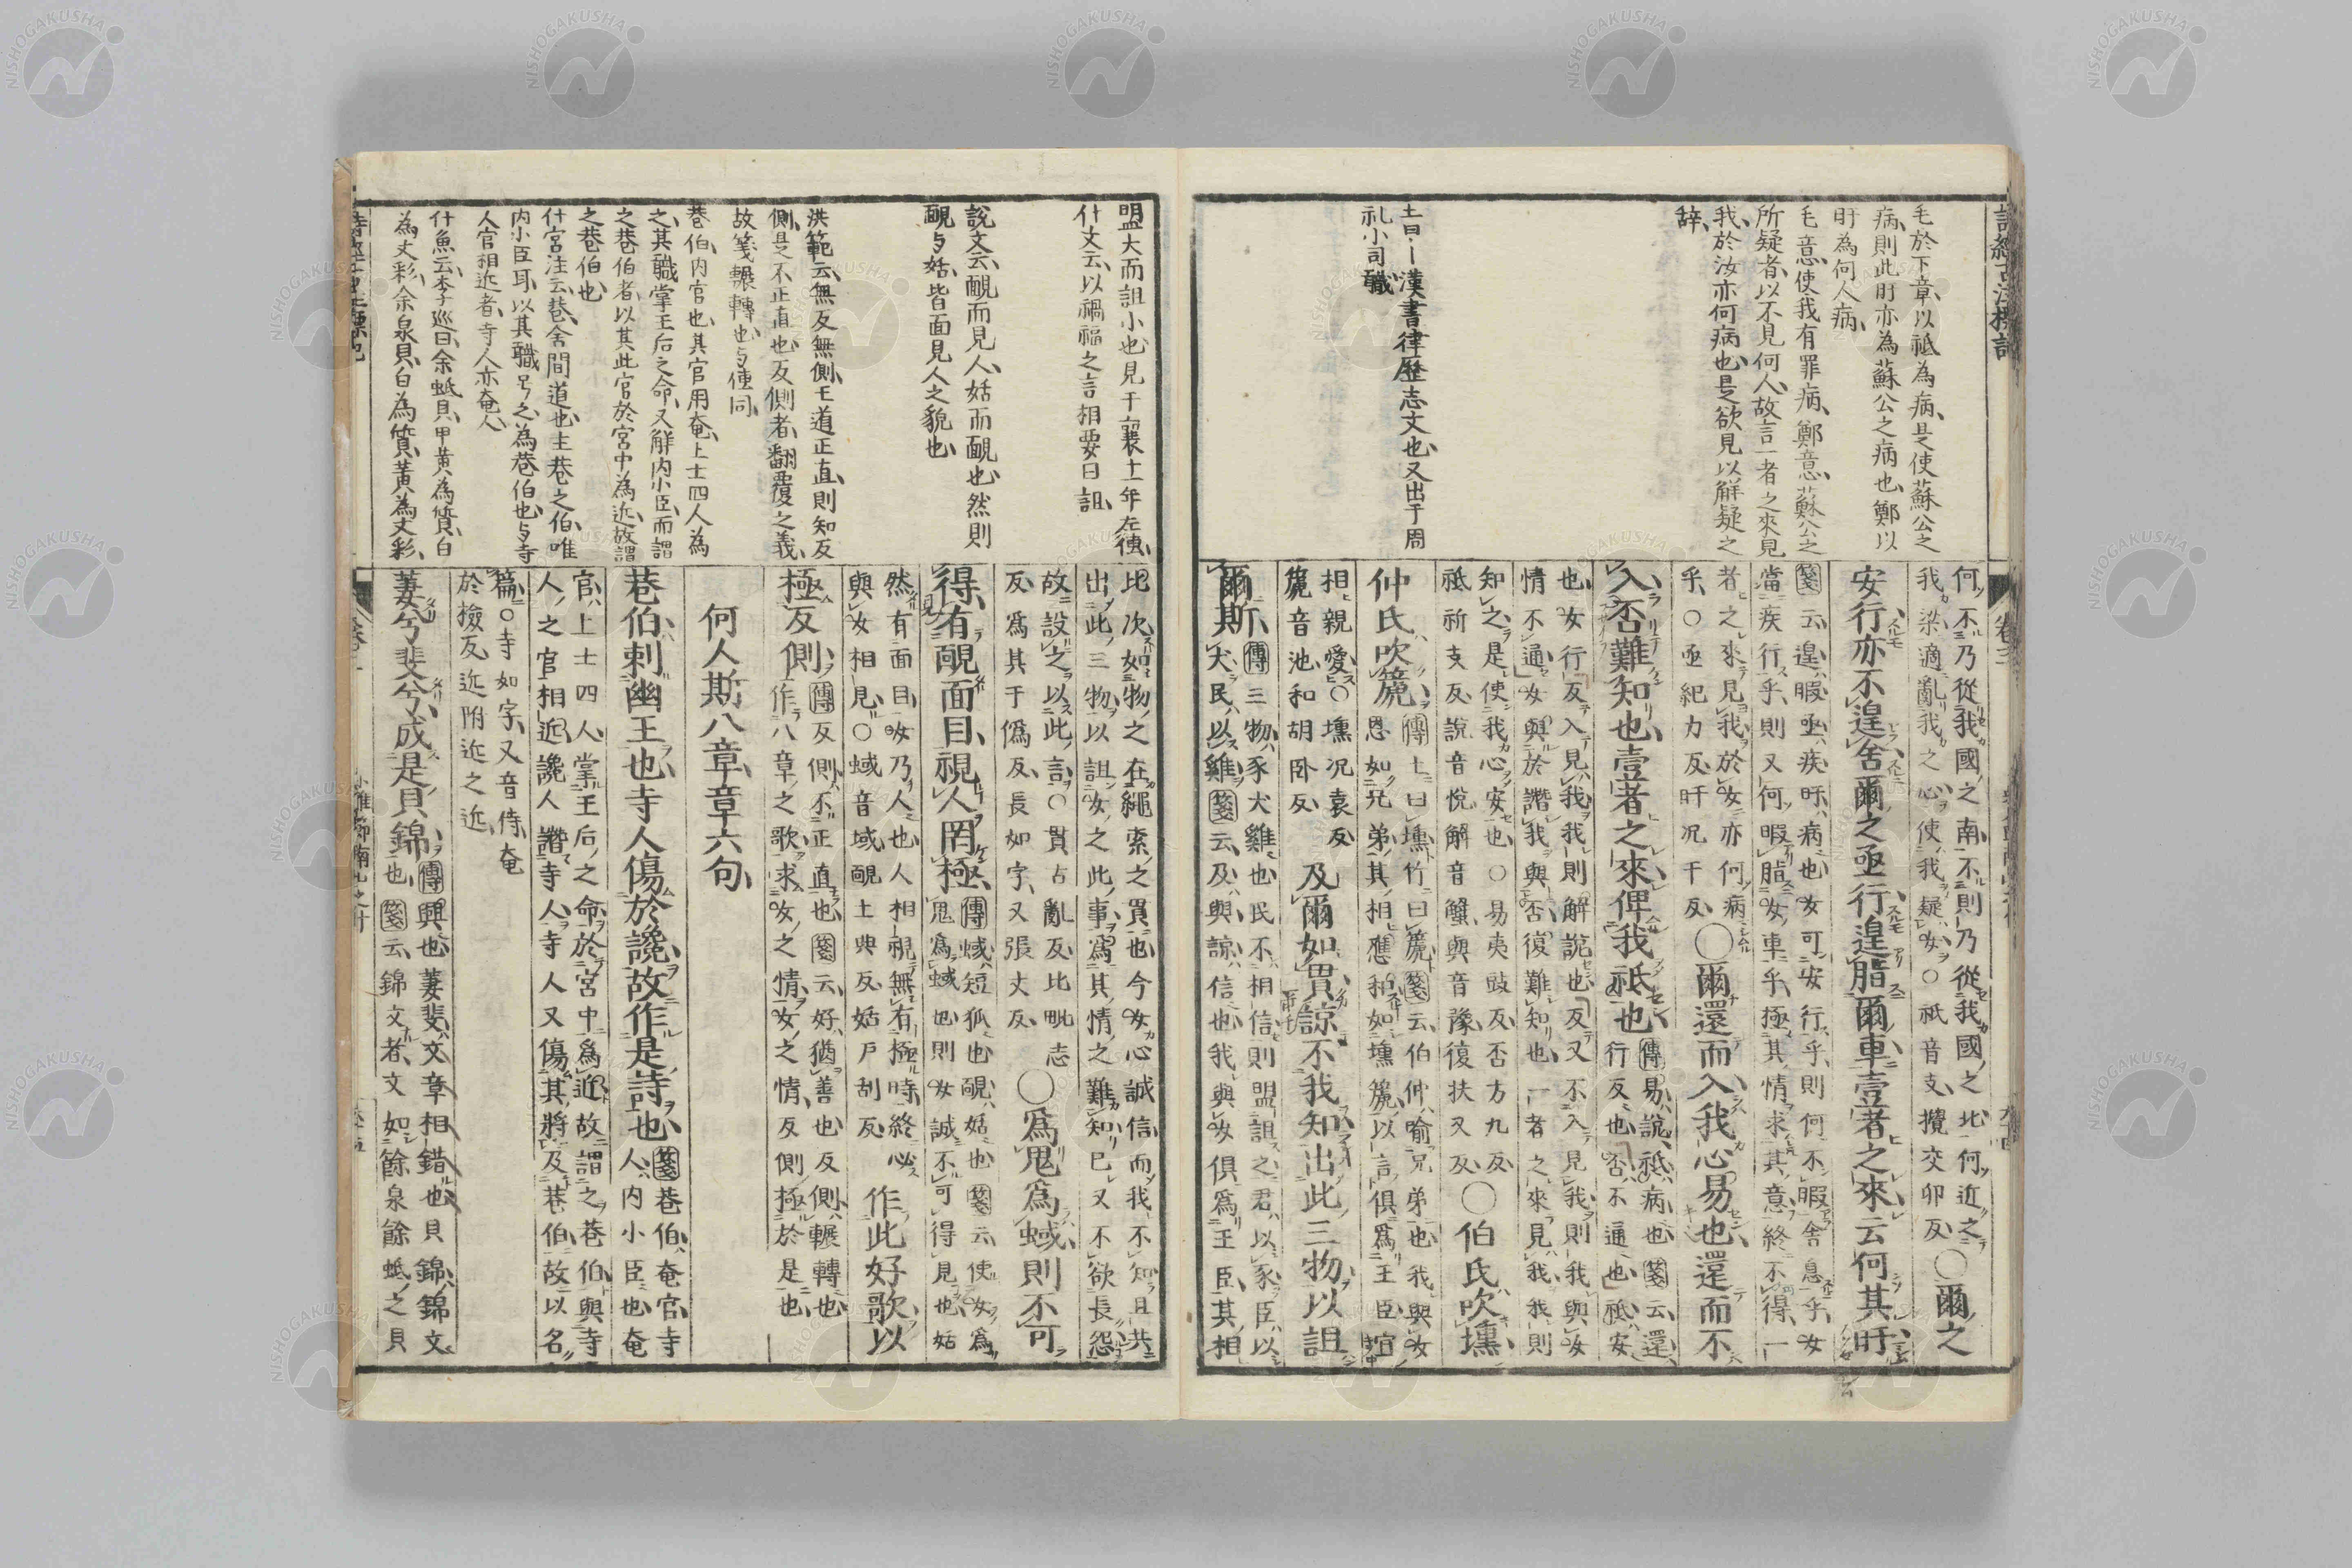 毛於下章、以祇為病、是使蘇公之
病、則此盱亦為蘇公之病也、鄭以
盱為何人病、
毛意、使我有罪病、鄭意、蘇公之
所疑者、以不見何人、故言一者之來見
我、於汝亦何病也、是欲見以解疑之
辞、
土曰〡漢書律歷志文也、又出于周
礼小司職
何不乃從我國之南、不則乃從我國之北、何近之
我梁、適亂我之心、使我疑女○祇音支、攪交卯反、〇爾之
安行、亦不遑舍、爾之亟行、遑脂爾車、壹者之來、云何其盱、
箋云、遑暇、亟疾、盱病也、女可安行乎、則何不暇舍息乎、女
當疾行乎、則又何暇脂女車乎、極其情、求其意、終不得、一
者之來見我、於女亦何病
乎、○亟紀力反、盱况于反、〇爾還而入、我心易也、還而不
入、否難知也、壹者之來、俾我祇也、傳易說、祇病也、箋云、還
行反也、否不通也、祇安
也、女行反入見我、我則解說也、反又不入見我、則我與女
情不通、女與於譖我與否、復難知也、一者之來見我、我則
知之、是使我心安也、○易夷豉反、否方九反、
祇祈支反、說音悅、解音蟹、與音豫、復扶又反、〇伯氏吹壎、
仲氏吹篪、傳土曰壎、竹曰篪、箋云、伯仲、喻兄弟也、我與女
恩如兄弟、其相應和如壎篪、以言俱爲王臣、宜
相親愛、○壎况袁反、
篪音池、和胡卧反、及爾如貫、諒不我知、出此三物、以詛
爾斯、傳三物、豕犬雞也、民不相信則盟詛之、君以豕、臣以
犬、民以雞、箋云、及與、諒信也、我與女俱爲王臣、其相
盟大而詛小也、見于襄十一年左傳、
什文云、以禍福之言相要曰詛、
說文云、靦面見人、姑面靦也、然則
靦与姑、皆面見人之貌也、
洪範云、無反無側、王道正直、則知反
側、是不正直也、反側者、翻覆之義、
故箋輾轉也、与㑌同、
巷伯、内官也、其官用奄、上士四人為
之、其職掌王后之命、又解内小臣、而謂
之巷伯者、以其此官於宮中為近、故謂
之巷伯也、
什宮注云、巷、舍間道也、主巷之伯、唯
内小臣耳、以其職号之、為巷伯也、与寺
人官相近者、寺人亦奄人、
什魚云、李巡曰、余蚳貝、甲黄為質、白
為文彩、余泉貝、白為質、黄為文彩、
比次、如物之在繩索之貫也、今女心誠信、而我不知、且共
出此三物、以詛女之此事、爲其情之難知、巳又不欲長怨、
故設之以此言、○貫古亂反、比毗志
反、爲其于僞反、長如字、又張丈反、〇爲鬼爲蜮、則不可
得、有靦面目、視人罔極、傳蜮、短狐也、靦、姑也、箋云、使女爲
鬼爲蜮也、則女誠不可得見也、姑
然有面目、女乃人也、人相視無有極時、終必
與女相見、○蜮音域、靦土典反、姑戶刮反、作此好歌、以
極反側、傳反側、不正直也、箋云、好、猶善也、反側、輾轉也、
作八章之歌、求女之情、女之情、反側極於是也、
何人斯八章章六句、
巷伯、刺幽王也、寺人傷於讒、故作是詩也、箋巷伯、奄官、寺
人、内小臣也、奄
官、上士四人、掌王后之命、於宮中爲近、故謂之巷伯、與寺
人之官相近、讒人譖寺人、寺人又傷其將及巷伯、故以名
篇、○寺如字、又音侍、奄
於檢反、近附近之近、
萋兮斐兮、成是貝錦、傳興也、萋斐、文章相錯也、貝錦、錦文
也、箋云、錦文者、文如餘泉餘蚳之貝